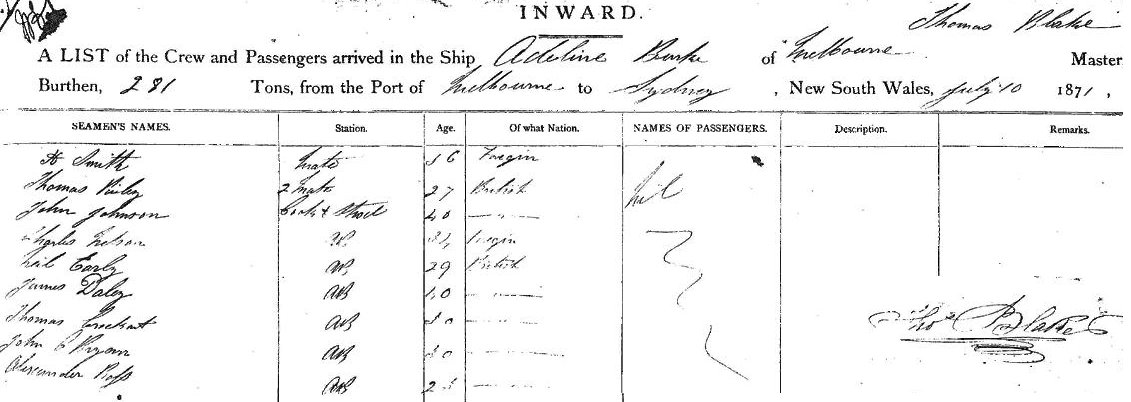 INWARD.
Thomas Blake
A LIST of the Crew and Passengers arrived in the Ship Adeline Burke of Melbourne Master
Burthen, 281 Tons, from the Port of Melbourne to Sydney, New South Wales, July 10 1871,
SEAMEN'S NAMES. Station. Age. Of what Nation. NAMES OF PASSENGERS. Description. Remarks.
Smith Mate 36
Thomas 2 Mate 27 British Nil
John Johnson Cook & 40 — " —
Charles AB
Neil Early AB 29 British
James Daley AB 40 — " —
Thomas AB 30 — " —
Thos Blake
John Ryan AB 30 — " —
Alexander Ross AB — " —